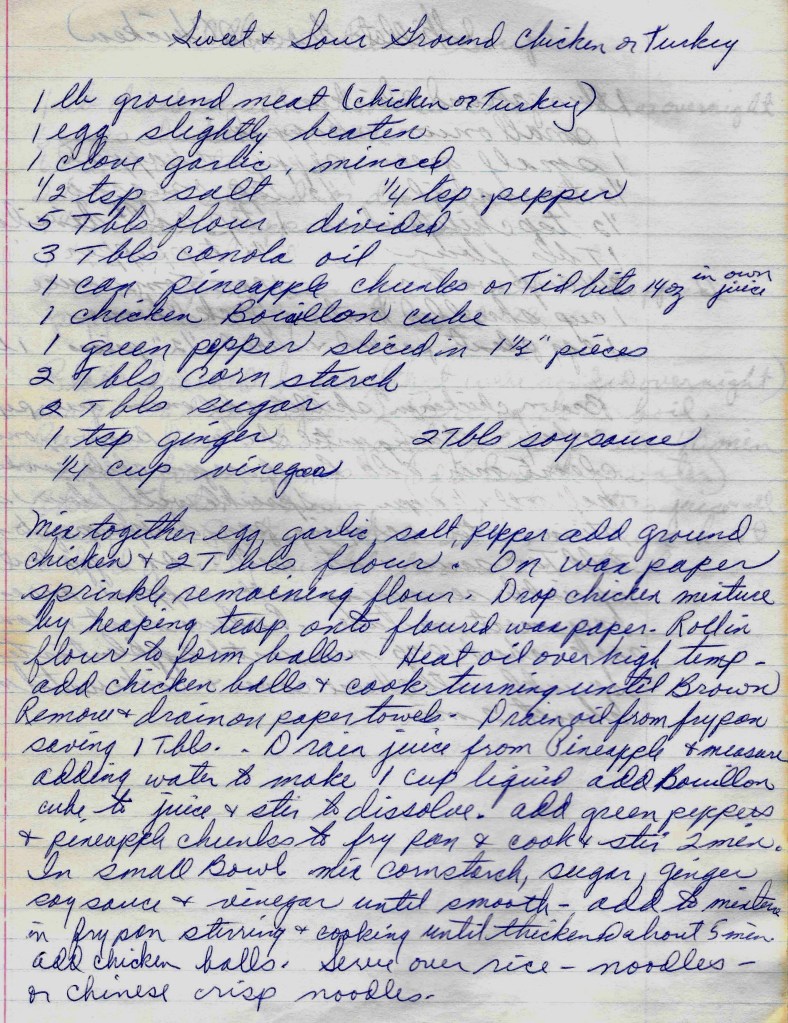 Sweet + Sour Ground Chicken or Turkey
1 lb ground meat (chicken or Turkey)
1 egg slightly beaten
1 clove garlic, minced
1/2 tsp salt 1/4 tsp pepper
5 Tbls flour divided
3 Tbls canola oil
1 can pineapple chunks or Tidbits 14 oz in own juice
1 chicken Bouillon cube
1 green pepper sliced in 1 1/2" pieces
2 Tbls cornstarch
2 Tbls sugar
1 tsp ginger 2 Tbls soysauce
1/4 cup vinegar
Mix together egg, garlic, salt, pepper add ground
chicken + 2 Tbls flour. On wax paper
sprinkle remaining flour. Drop chicken mixture
by heaping teasp onto floured wax paper - Roll in
flour to form balls. Heat oil over high temp -
add chicken balls + cook turning until Brown
Remove + drain on paper towels - Drain oil from fry pan
saving 1 Tbls. - Drain juice from Pineapple + measure
adding water to make 1 cup liquid add Bouillon
cube to juice + stir to dissolve. add green peppers
+ pineapple chunks to fry pan + cook + stir 2 min.
In small Bowl mix cornstarch, sugar, ginger
soysauce + vinegar until smooth - add to mixture
in fry pan stirring + cooking until thickened about 5 min.
add chicken balls. Serve over rice - noodles -
or chinese crisp noodles.